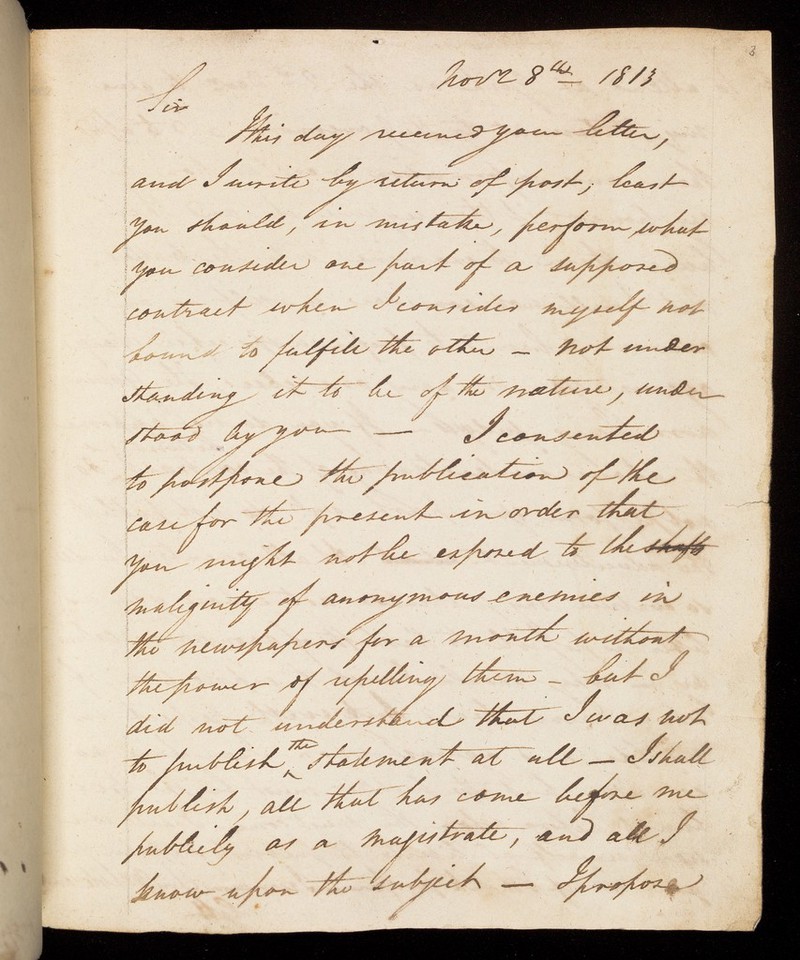 2
Novr 8th 1813
Sir
This day received your letter,
and I write by return of post, least
you should, in mistake, perform what
you consider one part of a supposed
contract when I consider myself not
bound to fulfill the other – not under
standing it to be of the nature, under
stood by you — I consented
to postpone the publication of the
case for the present in order that
you might not be exposed to the shafts
malignity of anonymous enemies in
the newspapers for a month without
the power of repelling them – but I
did not understand that I was not
to publish the statement at all – I shall
publish, all that has come before me
publicly as a magistrate, and all I
know upon the subject — I propose